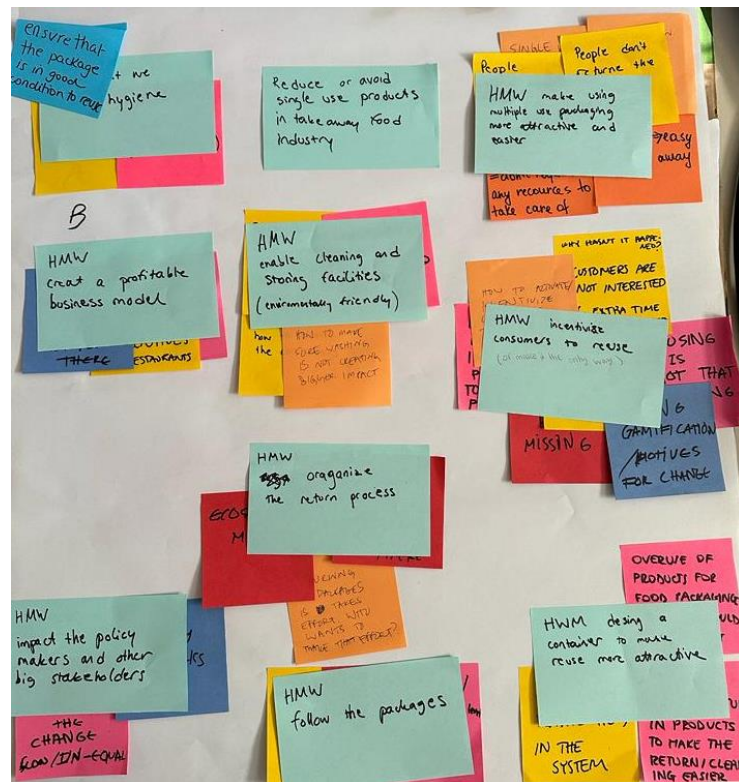 ensure that
the package
is in good
condition to reuse
we
hygiene
Reduce or avoid
single use products
in take away food
industry
SINGLE
People
People don't
returne the
HMW make using
multiple use packaging
more attractive and
easier
easy
away
any recources to
take care of
B
HMW
creat a profitable
business model
THERE
ESTAURANTS
HMW
enable cleaning and
storing facilities
(environmentally friendly)
how
the
HOW TO MAKE
SURE WASHING
IS NOT CREATING
BIGGER IMPACT
WHY HASN'T IT HAPPE
NED?
CUSTOMERS ARE
NOT INTERESTED
EXTRA TIME
HOW TO MOTIVATE
HMW incentivise
consumers to reuse
(or make it the only way)
IS
OT THAT
MISSING
GAMIFICATION
/MOTIVES
FOR CHANGE
HMW
oraganize
the return process
PACKAGES
IS TAKES
EFFORT WHO
WANTS TO
MAKE THAT EFFORT?
HMW
impact the policy
makers and other
big stakeholders
THE
CHANGE
HMW
follow the packages
OVERUSE OF
PRODUCTS FOR
FOOD PACKAGING
HWM desing a
container to make
reuse more attractive
IN THE
SYSTEM
IN PRODUCTS
TO MAKE THE
RETURN/CLEAN
ING EASIER